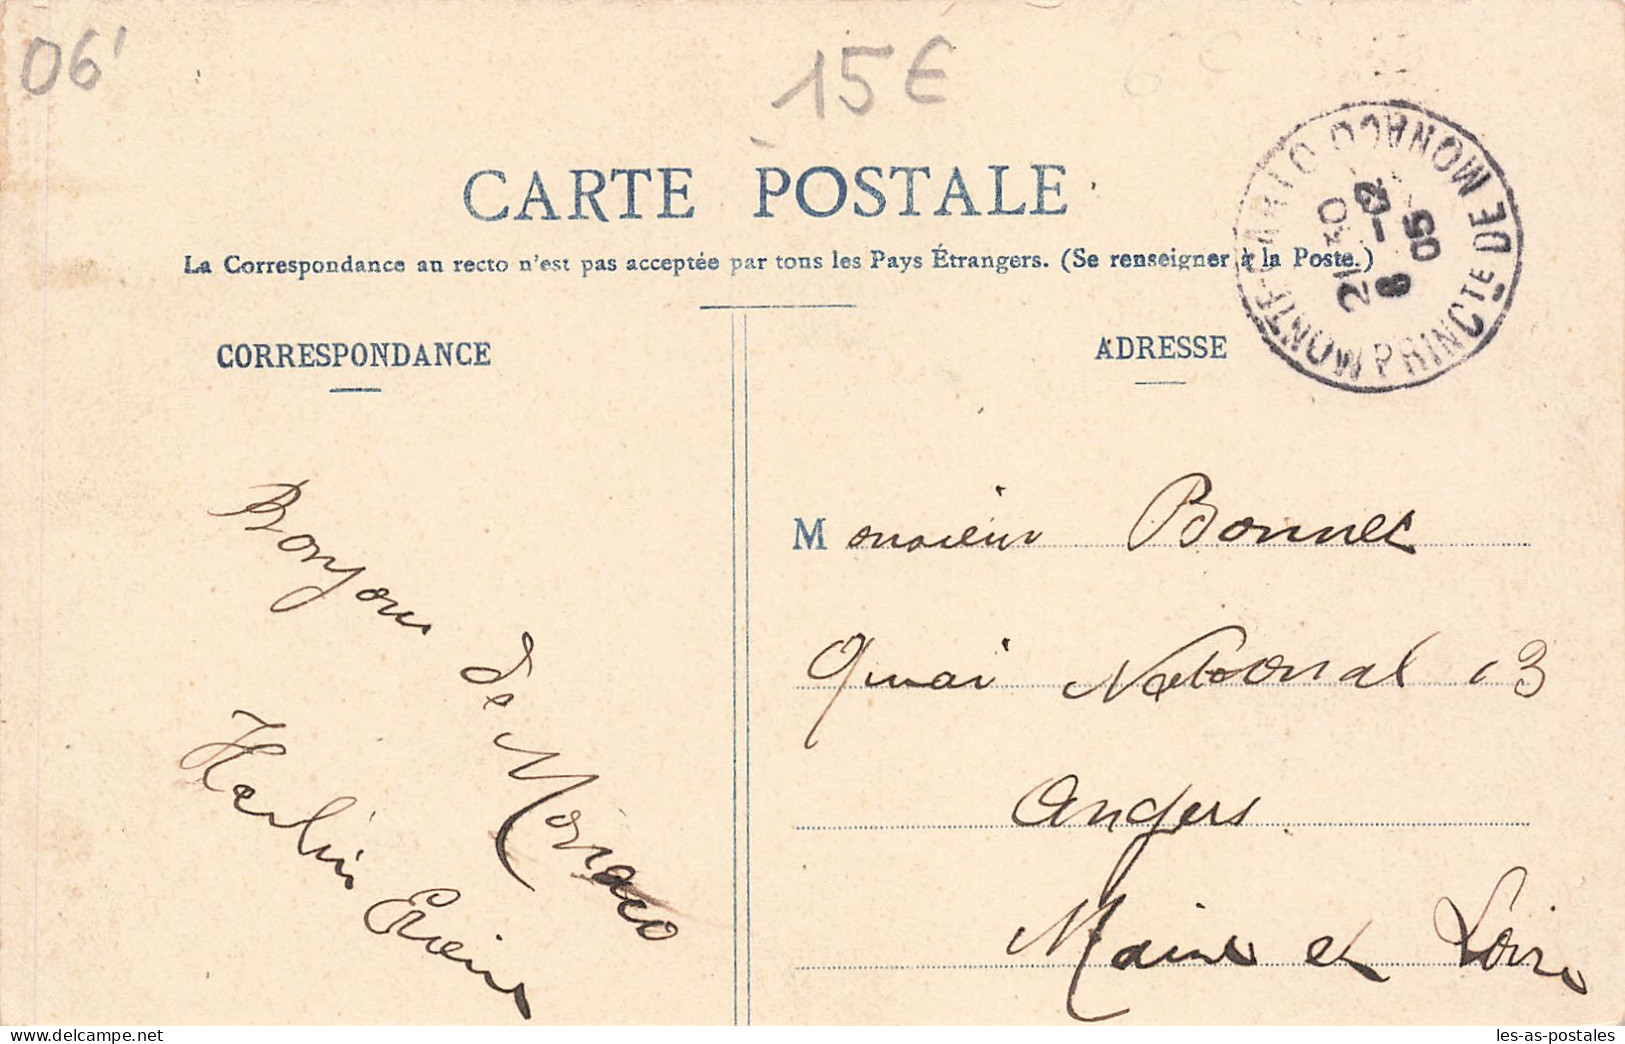 06'
15€
CARTE POSTALE
La Correspondance au recto n'est pas acceptée par tous les Pays Étrangers. (Se renseigner à la Poste.)
MONTE-CARLO PRINCTE DE MONACO
21 30
8 -2
05
CORRESPONDANCE
Bonjour de Monaco
ADRESSE
Monsieur Bonnet
Quai National 13
Angers
Maine et Loire
www.delcampe.net
les-as-postales